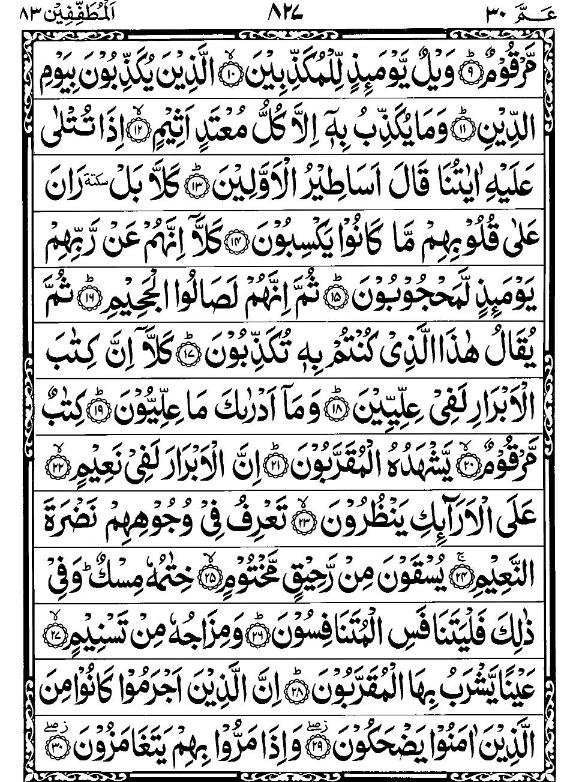 عَمَّ ٣٠ ٨٢٧ اَلْمُطَفِّفِيْن ٨٣
مَّرْقُوْمٌ ۹ وَيْلٌ يَّوْمَئِذٍ لِّلْمُكَذِّبِيْنَ ۱۰ الَّذِيْنَ يُكَذِّبُوْنَ بِيَوْمِ
الدِّيْنِ ۱۱ وَمَا يُكَذِّبُ بِهٖۤ اِلَّا كُلُّ مُعْتَدٍ اَثِيْمٍ ۱۲ اِذَا تُتْلٰى
عَلَيْهِ اٰيٰتُنَا قَالَ اَسَاطِيْرُ الْاَوَّلِيْنَ ۱۳ كَلَّا بَلْ سكتة رَانَ
عَلٰى قُلُوْبِهِمْ مَّا كَانُوْا يَكْسِبُوْنَ ۱۴ كَلَّاۤ اِنَّهُمْ عَنْ رَّبِّهِمْ
يَوْمَئِذٍ لَّمَحْجُوْبُوْنَ ۱۵ ثُمَّ اِنَّهُمْ لَصَالُوا الْجَحِيْمِ ۱۶ ثُمَّ
يُقَالُ هٰذَا الَّذِيْ كُنْتُمْ بِهٖ تُكَذِّبُوْنَ ۱۷ كَلَّاۤ اِنَّ كِتٰبَ
الْاَبْرَارِ لَفِيْ عِلِّيِّيْنَ ۱۸ وَمَاۤ اَدْرٰىكَ مَا عِلِّيُّوْنَ ۱۹ كِتٰبٌ
مَّرْقُوْمٌ ۲۰ يَّشْهَدُهُ الْمُقَرَّبُوْنَ ۲۱ اِنَّ الْاَبْرَارَ لَفِيْ نَعِيْمٍ ۲۲
عَلَى الْاَرَآئِكِ يَنْظُرُوْنَ ۲۳ تَعْرِفُ فِيْ وُجُوْهِهِمْ نَضْرَةَ
النَّعِيْمِ ۲۴ يُسْقَوْنَ مِنْ رَّحِيْقٍ مَّخْتُوْمٍ ۲۵ خِتٰمُهٗ مِسْكٌ ؕ وَفِيْ
ذٰلِكَ فَلْيَتَنَافَسِ الْمُتَنَافِسُوْنَ ۲۶ وَمِزَاجُهٗ مِنْ تَسْنِيْمٍ ۲۷
عَيْنًا يَّشْرَبُ بِهَا الْمُقَرَّبُوْنَ ۲۸ اِنَّ الَّذِيْنَ اَجْرَمُوْا كَانُوْا مِنَ
الَّذِيْنَ اٰمَنُوْا يَضْحَكُوْنَ ۲۹ وَاِذَا مَرُّوْا بِهِمْ يَتَغَامَزُوْنَ ۳۰